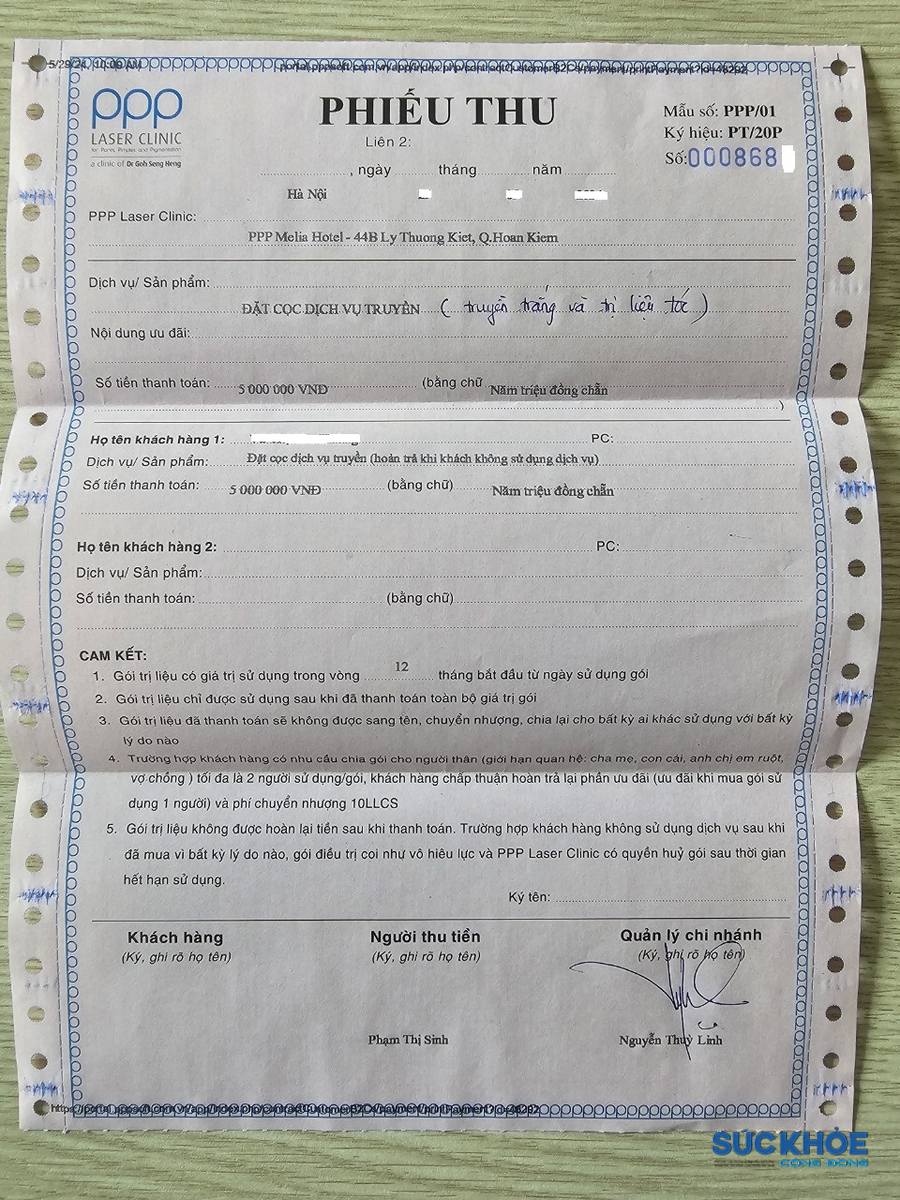 5/29/24, 10:09 AM
portal.pppsoft.com.vn/app/index.php/contractCustomerB2Cs/payment/printPayment?id=48292
ppp
LASER CLINIC
for Pores, Pimples and Pigmentation
a clinic of Dr Goh Seng Heng
PHIẾU THU
Liên 2:
Mẫu số: PPP/01
Ký hiệu: PT/20P
Số: 000868
, ngày tháng năm
Hà Nội
PPP Laser Clinic:
PPP Melia Hotel - 44B Ly Thuong Kiet, Q.Hoan Kiem
Dịch vụ/ Sản phẩm:
ĐẶT CỌC DỊCH VỤ TRUYỀN ( truyền trắng và trị liệu tóc )
Nội dung ưu đãi:
Số tiền thanh toán: 5 000 000 VNĐ (bằng chữ Năm triệu đồng chẵn
)
Họ tên khách hàng 1: PC:
Dịch vụ/ Sản phẩm: Đặt cọc dịch vụ truyền (hoàn trả khi khách không sử dụng dịch vụ)
Số tiền thanh toán: 5 000 000 VNĐ (bằng chữ) Năm triệu đồng chẵn
Họ tên khách hàng 2: PC:
Dịch vụ/ Sản phẩm:
Số tiền thanh toán: (bằng chữ)
CAM KẾT:
1. Gói trị liệu có giá trị sử dụng trong vòng 12 tháng bắt đầu từ ngày sử dụng gói
2. Gói trị liệu chỉ được sử dụng sau khi đã thanh toán toàn bộ giá trị gói
3. Gói trị liệu đã thanh toán sẽ không được sang tên, chuyển nhượng, chia lại cho bất kỳ ai khác sử dụng với bất kỳ
lý do nào
4. Trường hợp khách hàng có nhu cầu chia gói cho người thân (giới hạn quan hệ: cha mẹ, con cái, anh chị em ruột,
vợ chồng ) tối đa là 2 người sử dụng/gói, khách hàng chấp thuận hoàn trả lại phần ưu đãi (ưu đãi khi mua gói sử
dụng 1 người) và phí chuyển nhượng 10LLCS
5. Gói trị liệu không được hoàn lại tiền sau khi thanh toán. Trường hợp khách hàng không sử dụng dịch vụ sau khi
đã mua vì bất kỳ lý do nào, gói điều trị coi như vô hiệu lực và PPP Laser Clinic có quyền huỷ gói sau thời gian
hết hạn sử dụng.
Ký tên:
Khách hàng Người thu tiền Quản lý chi nhánh
(Ký, ghi rõ họ tên) (Ký, ghi rõ họ tên) (Ký, ghi rõ họ tên)
Phạm Thị Sinh Nguyễn Thuỳ Linh
https://portal.pppsoft.com.vn/app/index.php/contractCustomerB2Cs/payment/printPayment?id=48292
SỨC KHỎE
CỘNG ĐỒNG